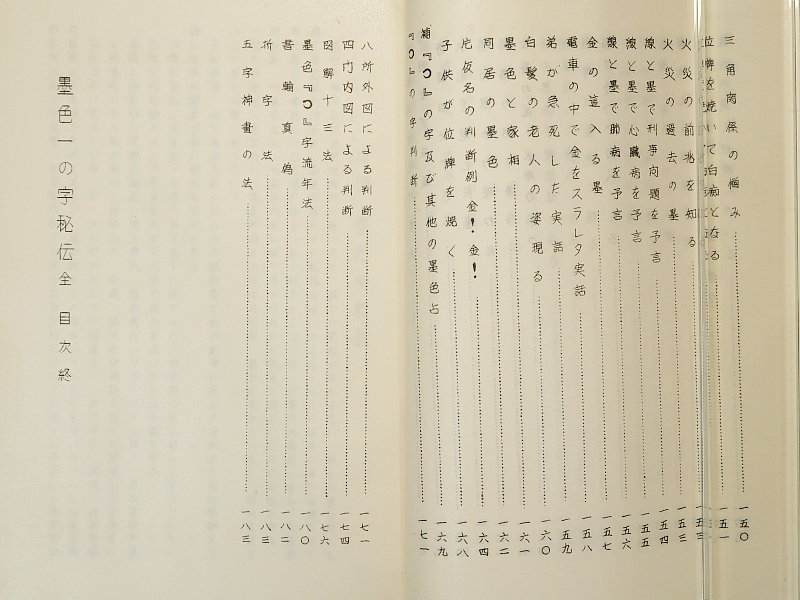 三角関係の悩み 一五〇
位牌を焼いて白痴となる 一五一
火災の前兆を知る 一五三
火災の過去の墨 一五四
線と墨で刑事問題を予言 一五五
線と墨で心臓病を予言 一五六
線と墨で肺病を予言 一五七
金の這入る墨 一五八
電車の中で金をスラレタ実話 一五九
弟が急死した実話 一六〇
白髪の老人の姿現る 一六一
墨色と家相 一六二
同居の墨色 一六四
片仮名の判断例金!金! 一六八
子供が位牌を焜く 一六九
『つ』の字及び其他の墨色占 一七一
『つ』の字判断
八所外図による判断 一七一
四門内図による判断 一七四
図解十三法 一七六
墨色『つ』字流年法 一八〇
書輪真偽 一八二
折字法 一八三
五字神畫の法 一八三
墨色一の字秘伝全 目次終